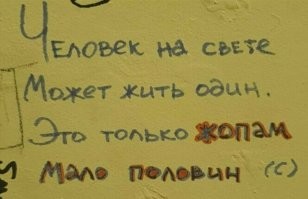 Человек на свете
Может жить один.
Это только жопам
Мало половин (с)